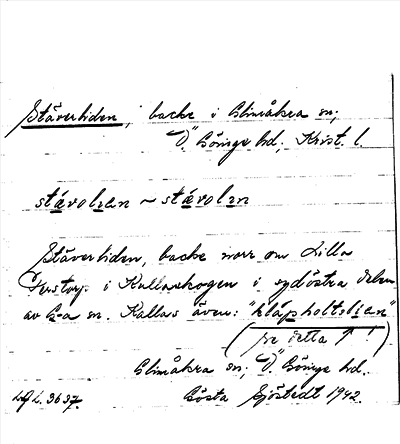 Stäverliden, backe i Glimåkra sn;
Ö. Göinge hd; Krist. l.
stävolian ~ stävolin
Stäverliden, backe norr om Lilla
i Kullaskogen i sydöstra delen
av G-a sn. Kallas även: "klåpholtslien"
(se detta ↑ !)
Glimåkra sn; Ö. Göinge hd.
LAL. 3637. Gösta Sjöstedt 1942.